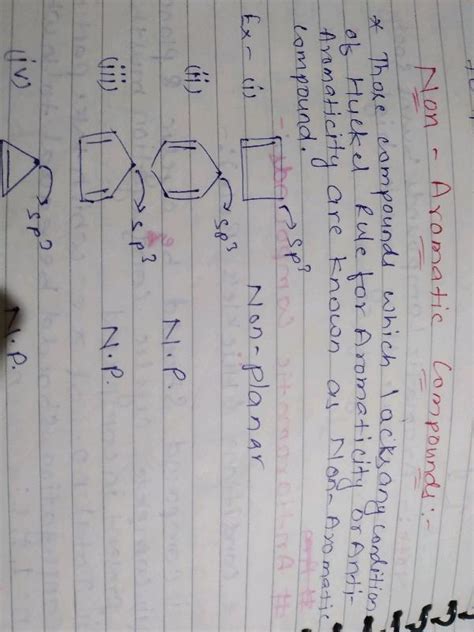 Non - Aromatic Compounds :-
* Those compounds which lacks any condition
of Huckel Rule for Aromaticity or Anti-
Aromaticity are known as Non-Aromatic
compound.
Ex- (i) sp3 Non-planar
(ii) sp3 N.P.
(iii) sp3 N.P.
(iv) sp3 N.P.